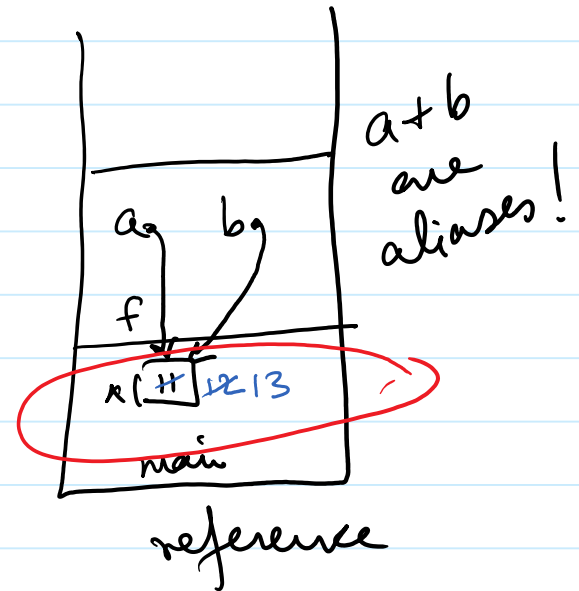 a + b
are
aliases!
a b
f
x 11 12 13
main
reference